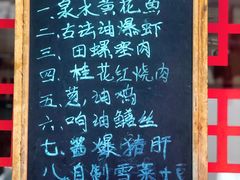 一.泉水黄花鱼
二.古法油爆虾
三.田螺塞肉
四.桂花红烧肉
五.葱油鸡
六.响油鳝丝
七.酱爆猪肝
八.自制雪菜+豆